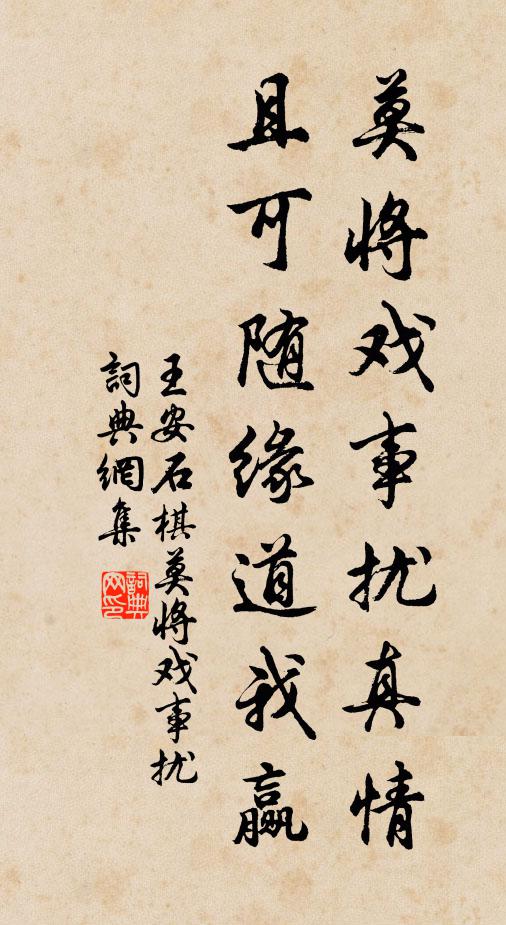 莫将戏事扰真情
且可随缘道我赢
王安石棋莫将戏事扰
詞典網集
詞典
网印